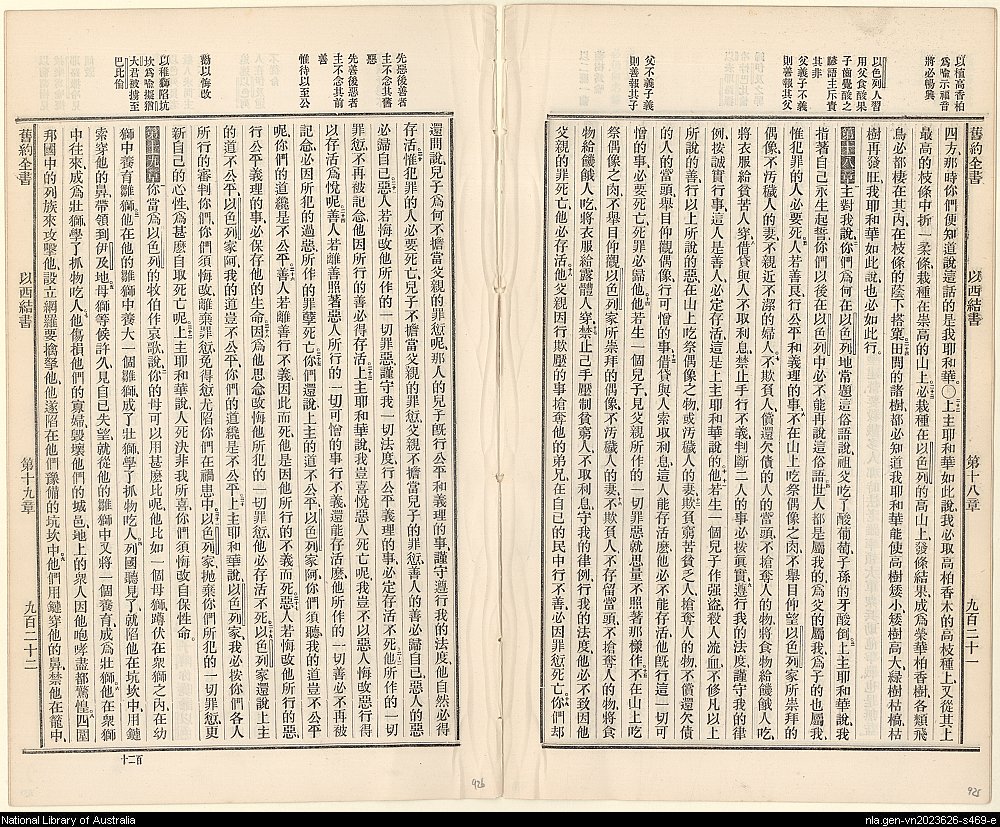 舊約全書 以西結書 第十八章 九百二十一
以植高香柏
為喻示福音
將必暢興
以色列人習
用父食酸果
子齒覺酸之
諺語主斥責
其非
父義子不義
則善報其父
父不義子義
則善報其子
四方、那時你們便知道說這話的是我耶和華。〇上主耶和華如此說、我必取高柏香木的高枝種上、又從其上
最高的枝條中、折一柔條、栽種在崇高的山上、必栽種在以色列的高山上、發條結果、成為榮華柏香樹、各類飛
鳥、必都棲在其內、在枝條的蔭下搭窠、田間的諸樹、都必知道我耶和華、能使高樹矮小、矮樹高大、綠樹枯槁、枯
樹再發旺、我耶和華如此說、也必如此行。
第十八章 主對我說、你們為何在以色列地常題這俗語說、祖父吃了酸葡萄、子孫的牙酸倒、上主耶和華說、我
指著自己永生起誓、你們以後在以色列中、必不能再說這俗語、世人都是屬我的、為父的屬我、為子的也屬我、
惟犯罪的人必要死、人若善良、行公平和義理的事、不在山上吃祭偶像之肉、不舉目仰望以色列家所崇拜的
偶像、不汚穢人的妻、不親近不潔的婦人、不欺貧人、償還欠債的人的當頭、不搶奪人的物、將食物給饑餓人吃、
將衣服給貧苦人穿、借貸與人不取利息、禁止手行不義、判斷二人的事、必按眞實、遵行我的法度、謹守我的律
例、按誠實行事、這人是善人、必定存活、這是上主耶和華說的、他若生一個兒子、作强盜、殺人流血、不修凡以上
所說的善行、以上所說的惡、在山上吃祭偶像之物、或汚穢人的妻、欺貧窮苦乏人、搶奪人的物、不償還欠債
人的當頭、舉目仰觀偶像、行可憎的事、借貸與人索取利息、這人能存活麼、他必不能存活、他旣行這一切可
憎的事、必要死亡、死罪必歸他、他若生一個兒子、見父親所作的一切罪惡、就思量不照著那樣作、不在山上吃
祭偶像之肉、不舉目仰觀以色列家所崇拜的偶像、不汚穢人的妻、不欺貧人、不存留當頭、不搶奪人的物、將食
物給饑餓人吃、將衣服給露體人穿、禁止己手壓制貧窮人、不取利息、守我的律例、行我的法度、他必不致因他
父親的罪死亡、他必存活、他父親因行欺壓的事、搶奪他的弟兄、在自己的民中行不善、必因罪愆死亡、你們却
先惡後善者
主不念其舊
惡
先善後惡者
主不念其前
善
惟待以至公
勸以悔改
以稚獅陷坑
坎為喻擬猶
大君被擄至
巴比倫
還問說、兒子為何不擔當父親的罪愆呢、那人的兒子旣行公平和義理的事、謹守遵行我的法度、他自然必得
存活、惟犯罪的人必要死亡、兒子不擔當父親的罪愆、父親不擔當兒子的罪愆、善人的善必歸自己、惡人的惡
必歸自己、惡人若悔改他所作的一切罪惡、謹守我一切法度、行公平義理的事、必定存活不死、他所作的一切
罪愆、不再被記念、他因所行的善、必得存活、上主耶和華說、我豈喜悅惡人死亡呢、我豈不以惡人悔改惡行得
存活為悅呢、善人若離善行、照著惡人所行的一切可憎的事行不義、還能存活麼、他所作的一切善必不再被
記念、必因所犯的過惡、所作的罪孽死亡、你們還說上主的道不公平、以色列家阿、你們須聽我的道、豈不公平
呢、你們的道纔是不公平、善人若離善行不義、因此而死、他是因他所行的不義而死、惡人若悔改他所行的惡、
行公平義理的事、必保存他的生命、因為他思念改悔他所犯的一切罪愆、他必存活不死、以色列家還說上主
的道不公平、以色列家阿、我的道豈不公平、你們的道纔是不公平、上主耶和華說、以色列家、我必按你們各人
所行的審判你們、你們須悔改、離棄罪愆、免得愆尤陷你們在禍患中、以色列家、抛棄你們所犯的一切罪愆、更
新自己的心性、為甚麼自取死亡呢、上主耶和華說、人死决非我所喜、你們須悔改、自保性命。
第十九章 你當為以色列的牧伯作哀歌、說、你的母可以用甚麼比呢、他比如一個母獅、蹲伏在衆獅之內、在幼
獅中養育雛獅、他在他的雛獅中養大一個雛獅、成了壯獅、學了抓物吃人、列國聽見了、就陷他在坑坎中、用鏈
索穿他的鼻、帶領到伊及地、母獅等候許久、見自己失望、就從他的雛獅中又將一個養育、成為壯獅、他在衆獅
中往來、成為壯獅、學了抓物吃人、他傷損他們的寡婦、毀壞他們的城邑、地上的衆人因他咆哮、盡都驚惶、四圍
邦國中的列族來攻擊他、設立網羅要擒拏他、他遂陷在他們豫備的坑坎中、他們用鏈穿他的鼻、禁他在籠中、
舊約全書 以西結書 第十九章 九百二十二
百二十
926
925
National Library of Australia
nla.gen-vn2023626-s469-e